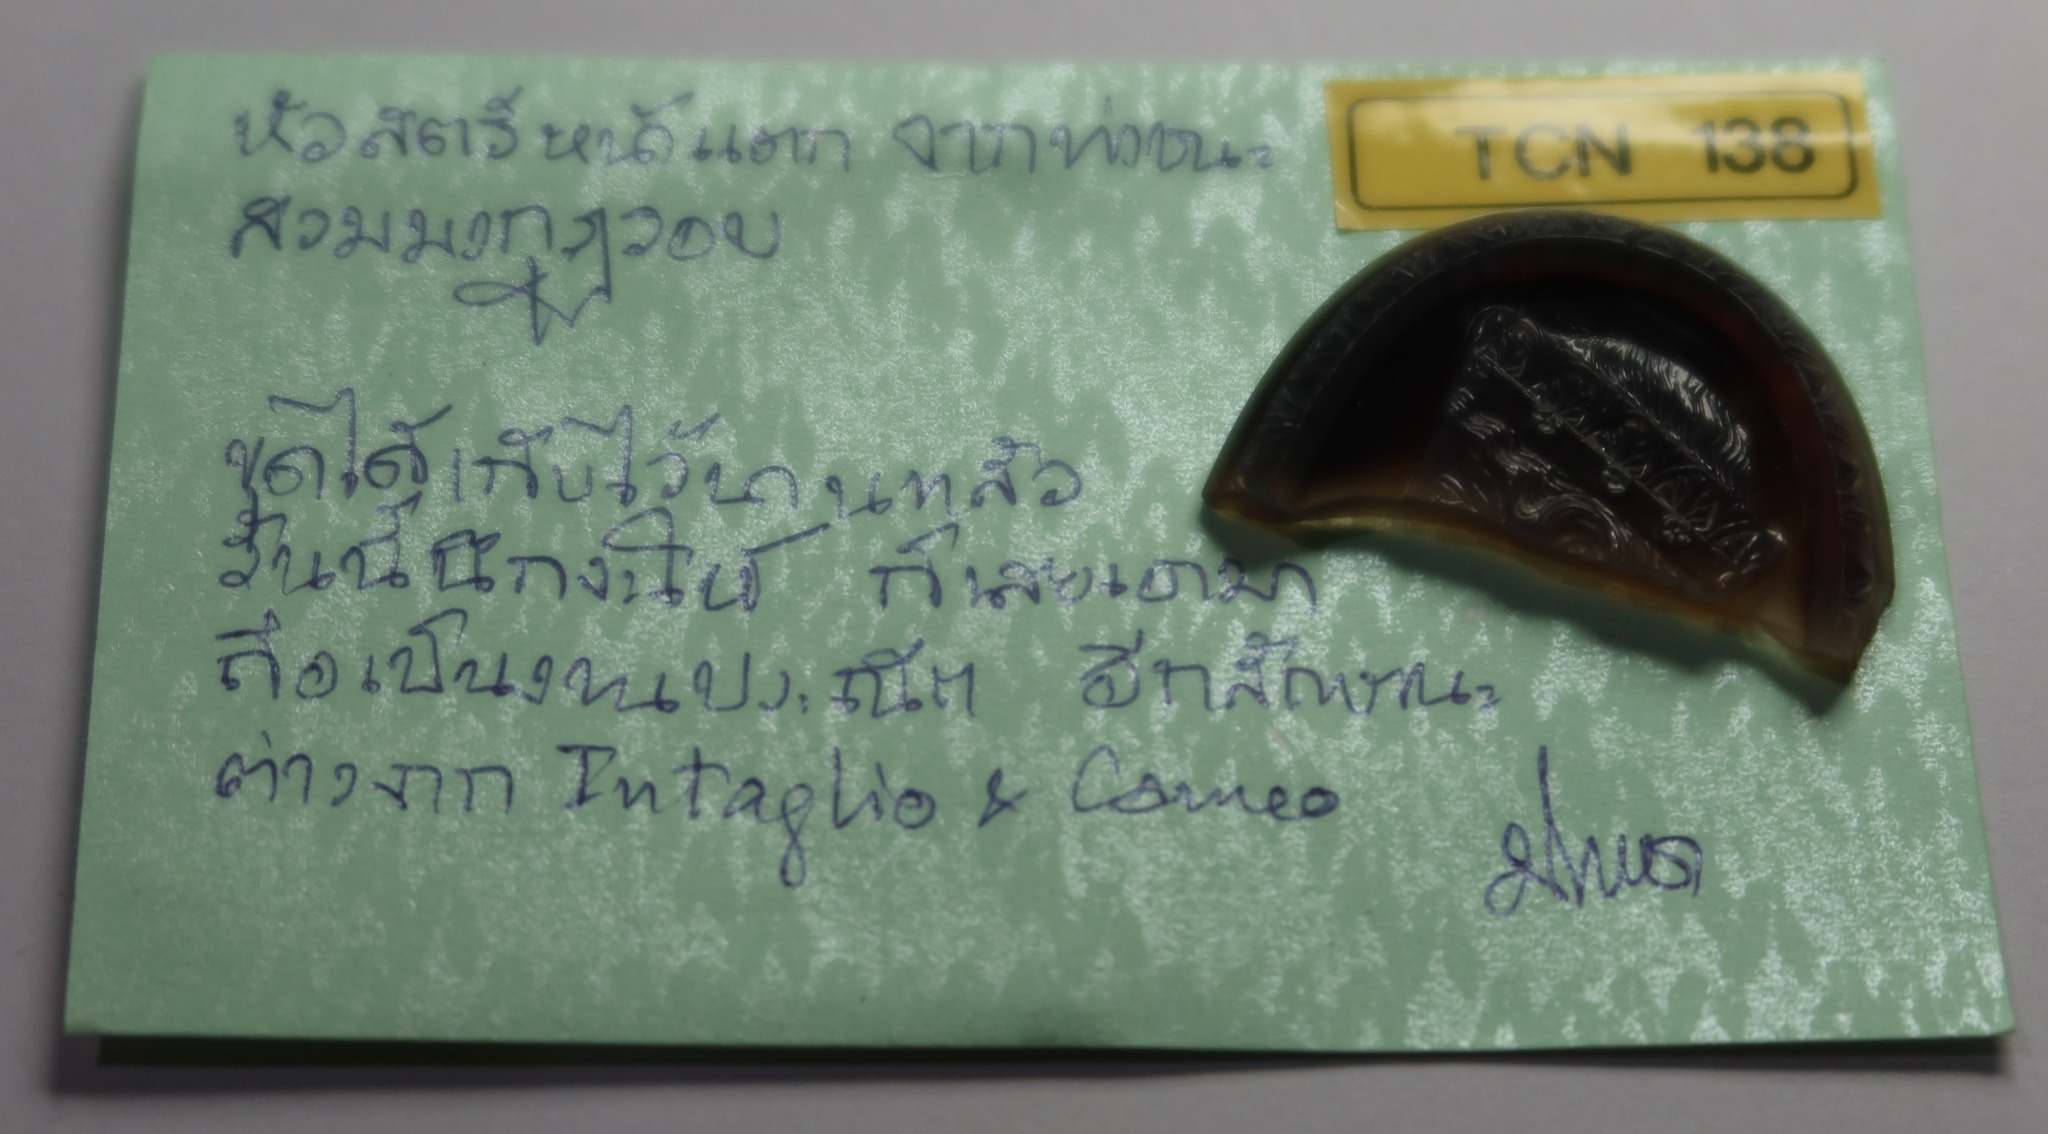 หัวสตรีหน้าแตก จากท่าชนะ
TCN 138
สวมมงกุฎรอบ
ขุดได้เก็บไว้นานแล้ว
วันนี้นึกงงใจ ก็เลยเอามา
ถือเป็นงานประณีต อีกลักษณะ
ต่างจาก Intaglio & Cameo